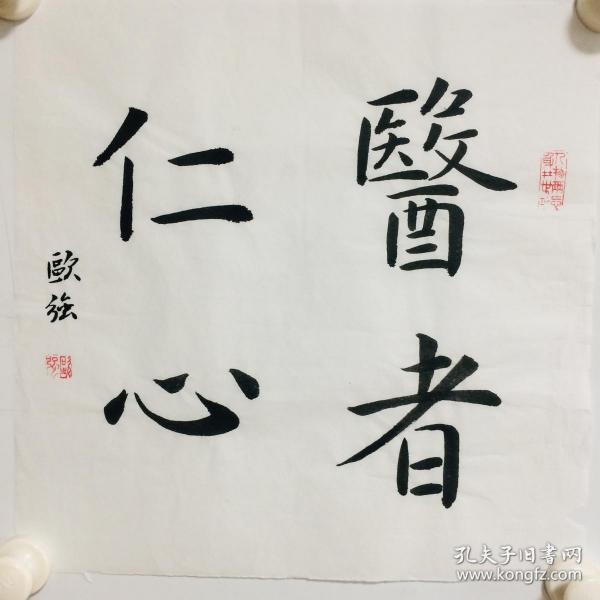 醫者
仁心
歐強
孔夫子旧书网
www.kongfz.com